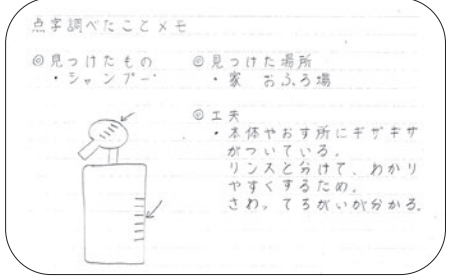 点字調べたことメモ
◎見つけたもの
・シャンプー
◎見つけた場所
・家 おふろ場
◎工夫
・本体やおす所にギザギザ
がついている。
リンスと分けて、わかり
やすくするため。
さわってちがいが分かる。